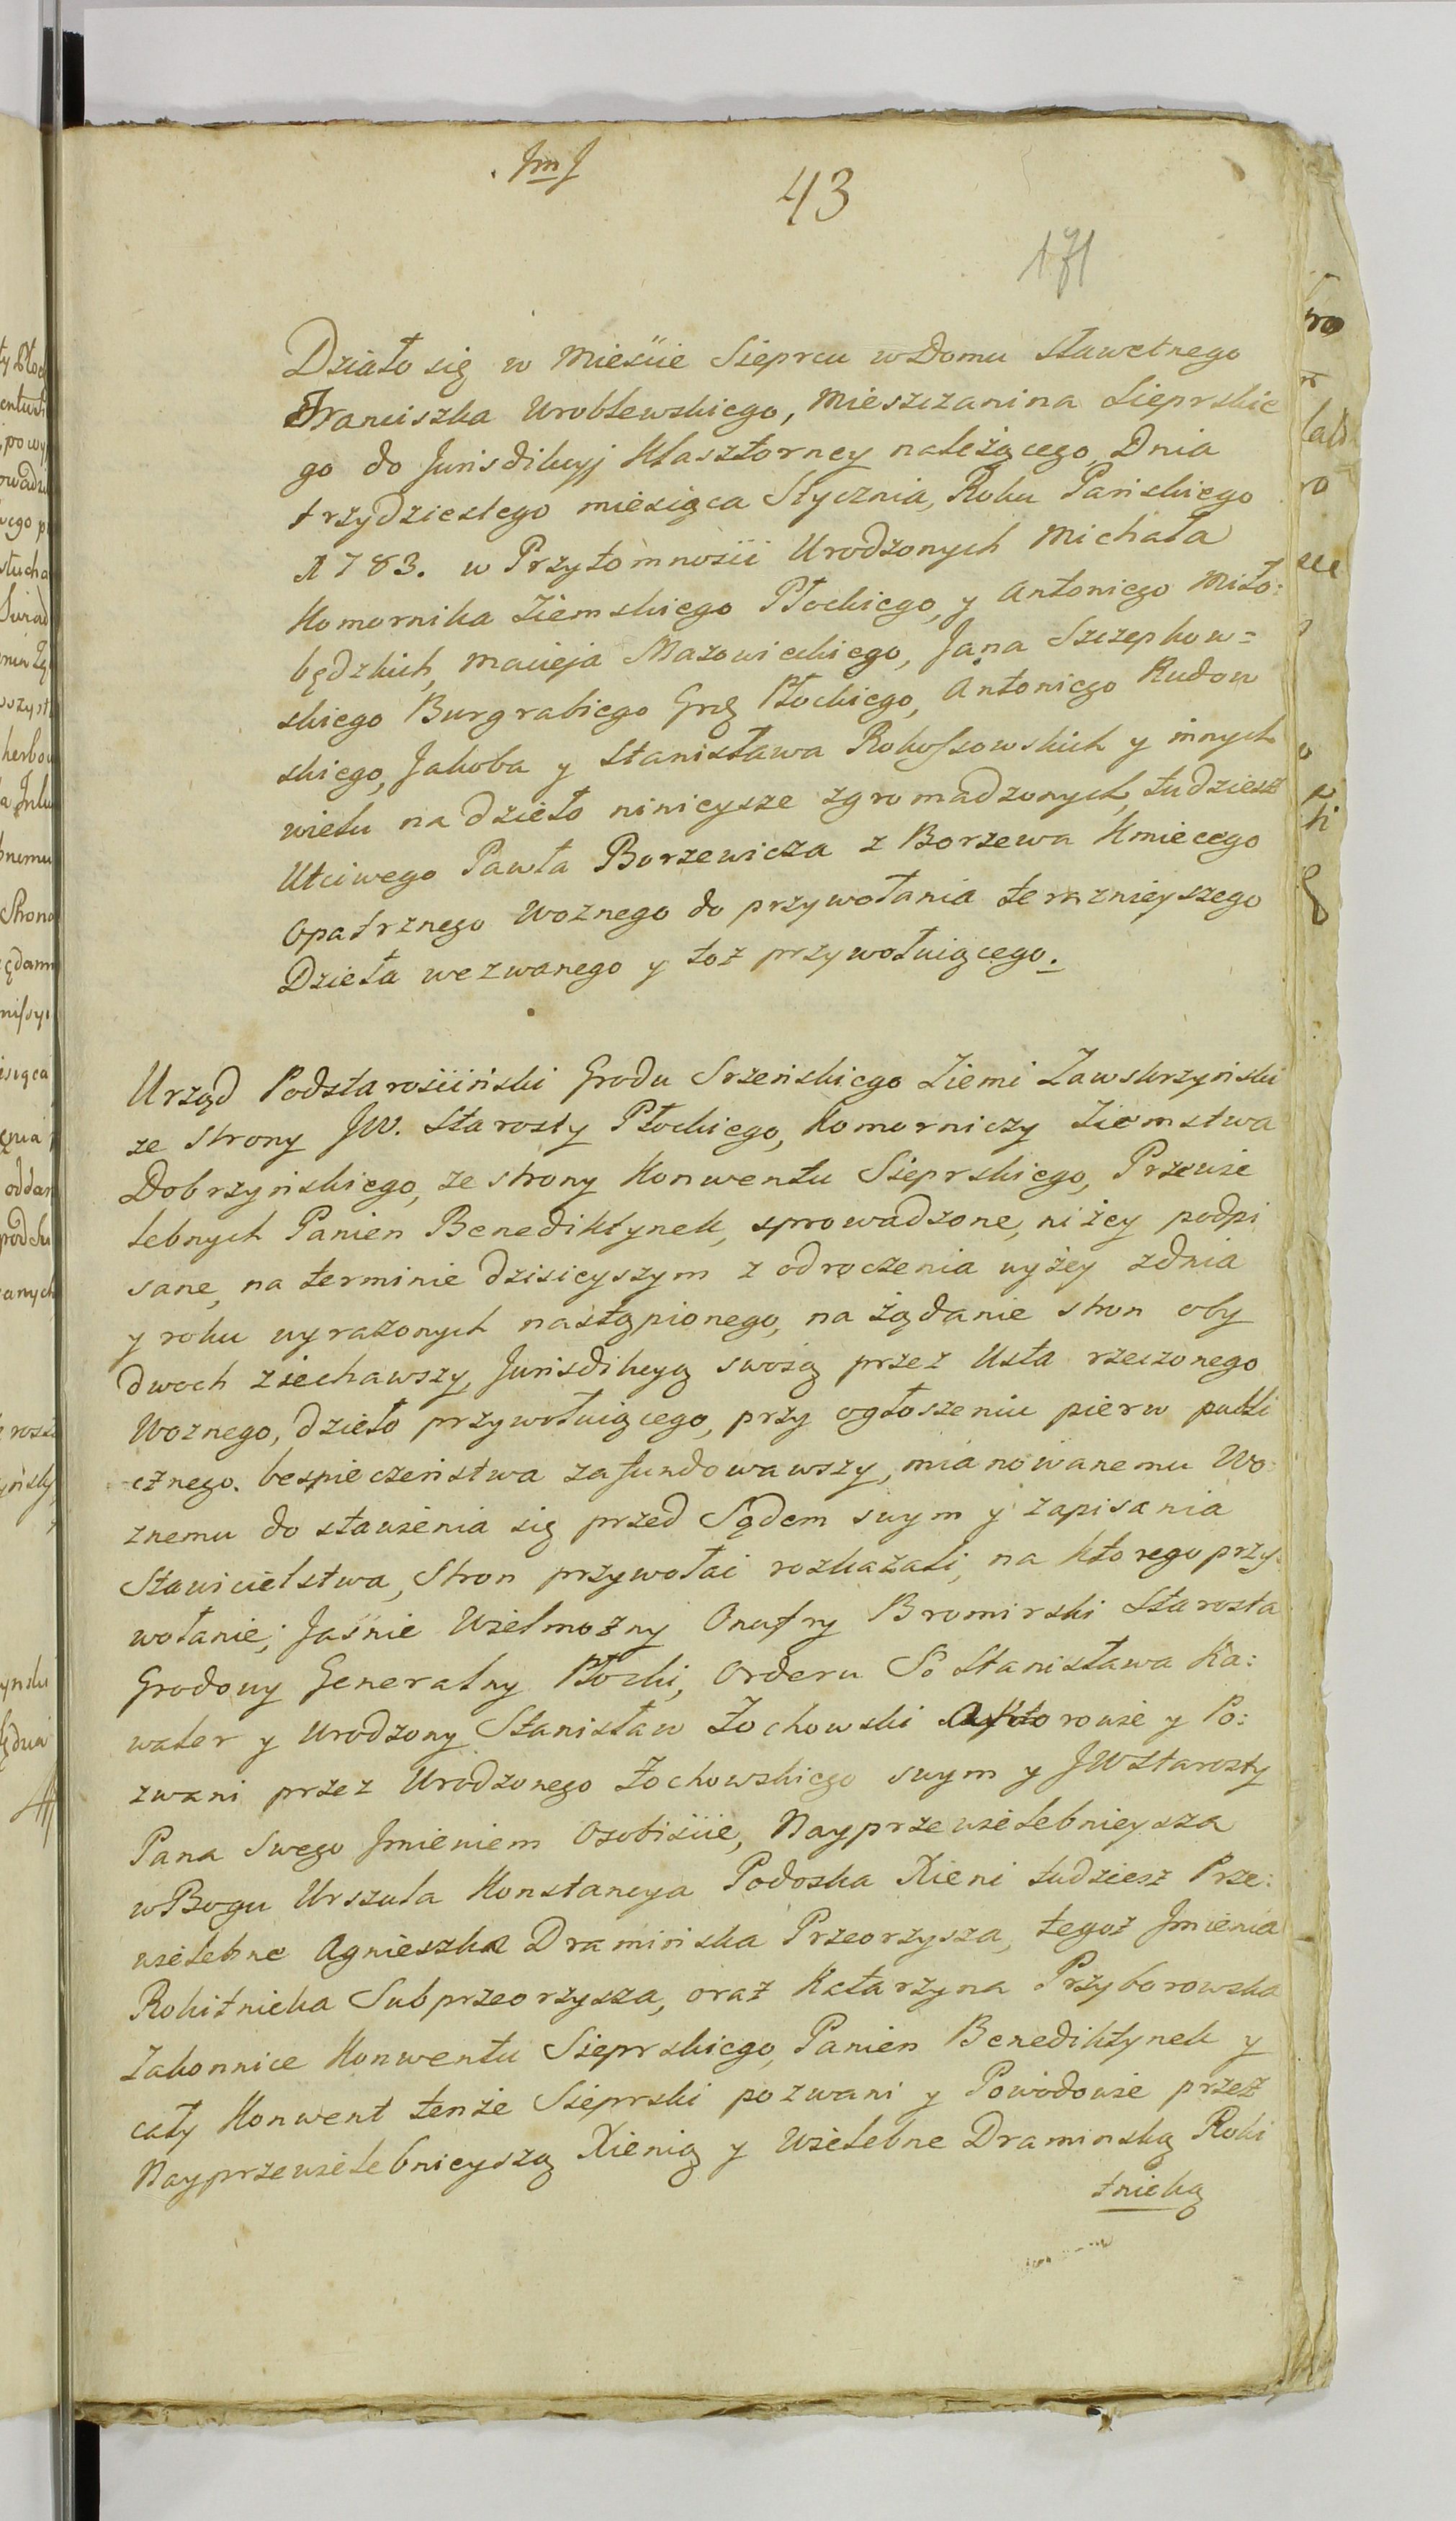 JmJ
43
171
Działo się w Mieście Sieprcu w Domu Sławetnego
Franciszka Wroblewskiego, Mieszczanina Sieprskie
go do Jurisdikcyj Klasztorney należącego, Dnia
trzydziestego miesiąca Stycznia, Roku Pańskiego
1783. w Przytomności Urodzonych Michała
Komornika Ziemskiego Płockiego, y Antoniego Miło:
będzkich, Macieja Mazowieckiego, Jana Szczepkow=
skiego Burgrabiego Grdg Płockiego, Antoniego Rudow
skiego, Jakoba y Stanisława Rokossowskich y innych
wielu na dzieło ninieysze zgromadzonych, tudziesz
Uczciwego Pawła Borzewicza z Borzewa Kmiecego
Opatrznego Woznego do przywołania teraznieyszego
Dzieła wezwanego y toż przywołuiącego.
Urząd Podstarościński Grodu Srzeńskiego Ziemi Zawskrzyński
ze strony JW. Starosty Płockiego, Komorniczy Ziemstwa
Dobrzyńskiego, ze strony Konwentu Sieprskiego, Przewie
lebnych Panien Benediktynek, sprowadzone, niżey podpi
sane, na terminie dzisieyszym z odroczenia wyżey zdnia
y roku wyrażonych nastąpionego, na żądanie stron oby
dwoch ziechawszy, Jurisdikcyą swoią przez Usta rzeczonego
Woznego, dzieło przywołuiącego, przy ogłoszeniu pierw publi
cznego bespieczeństwa zafundowawszy, mianowanemu Wo
znemu do stawienia się przed Sądem swym y zapisania
Stawicielstwa, Stron przywołać rozkazali, na ktorego przy
wołanie; Jaśnie Wielmożny Onufry Bromirski Starosta
Grodowy Generalny Płocki, Orderu So Stanisława Ka:
waler y Urodzony Stanisław Zochowski Aktorowie y Po:
zwani przez Urodzonego Zochowskiego swym y JWStarosty
Pana Swego Jmieniem Osobiście, Nayprzewielebnieysza
w Bogu Urszula Konstancya Podoska Xieni tudziesz Prze:
wielebne Agnieszka Dramińska Przeorzysza, tegoż Jmienia
Rokitnicka Subprzeorzysza, oraz Katarzyna Przyborowska
Zakonnice Konwentu Sieprskiego, Panien Benediktynek y
cały Konwent tenże Sieprski pozwani y Powodowie przez
Nayprzewielebnieyszą Xienią y Wielebne Draminską Roki
tnicką